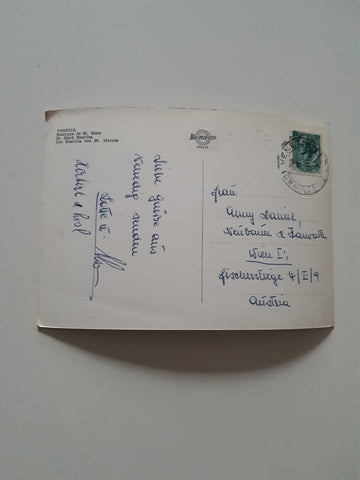 VENEZIA
Basilique de St. Marc
St. Mark Basilica
Die Basilika von St. Marcus
Liebe Grüsse aus
Venedig senden
Lotte u.
Herbert u
Frau
Anny Daniel,
Neubauer &
Wien I,
Fischerstiege 4/I/9
Austria